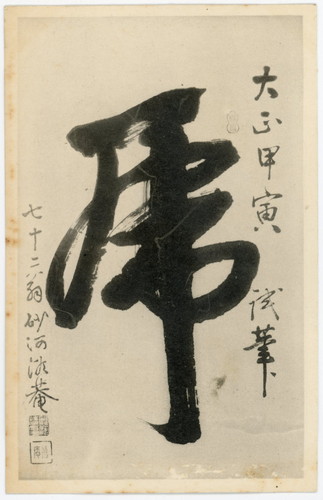 大正甲寅 試筆
虎
七十二翁 砂河漁菴